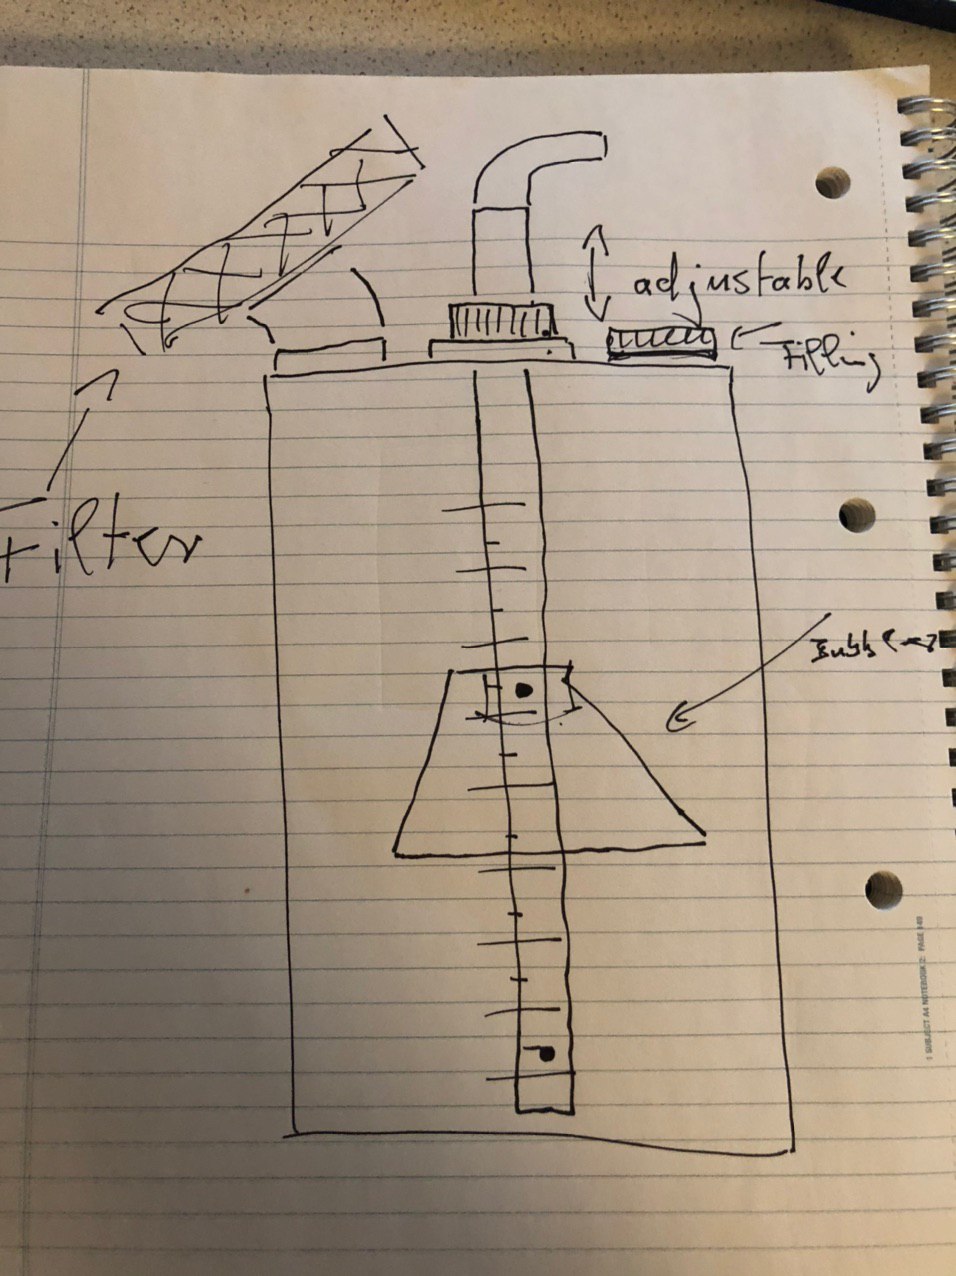 adjustable
Filling
Filter
1 SUBJECT A4 NOTEBOOK 2: PAGE 149